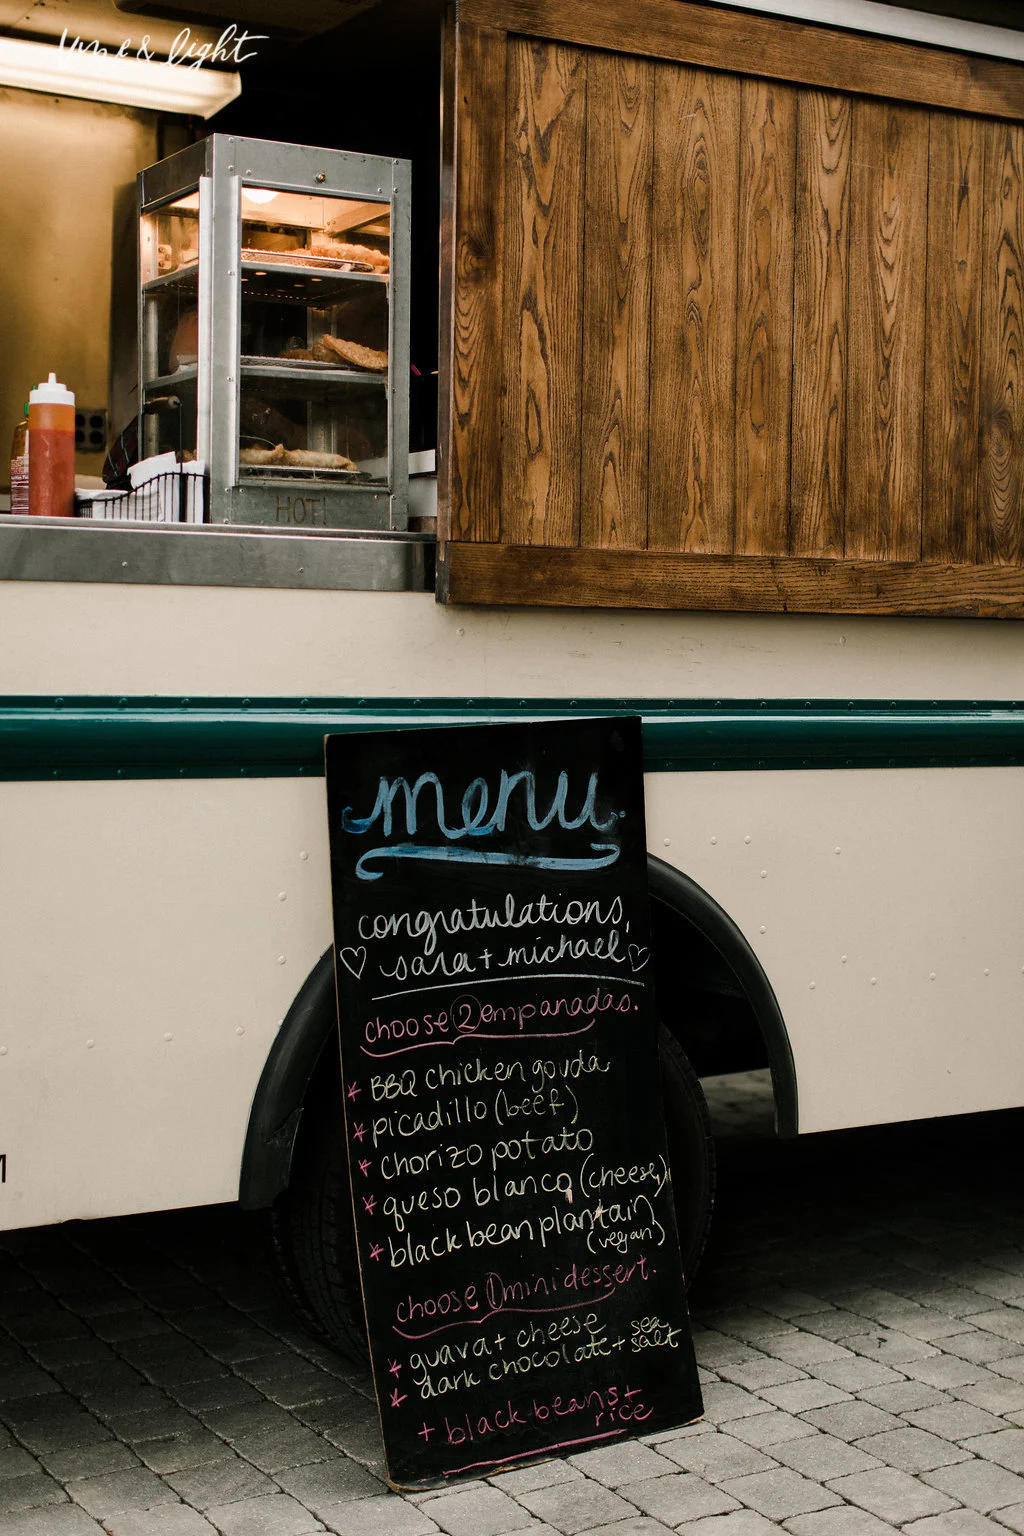 & light
HOT!
menu.
congratulations,
♡ sara + michael ♡
choose 2 empanadas.
* BBQ chicken gouda
* picadillo (beef)
* chorizo potato
* queso blanco (cheese)
* black bean plantain
(vegan)
choose 1 mini dessert.
* guava + cheese
* dark chocolate + sea salt
+ black beans +
rice